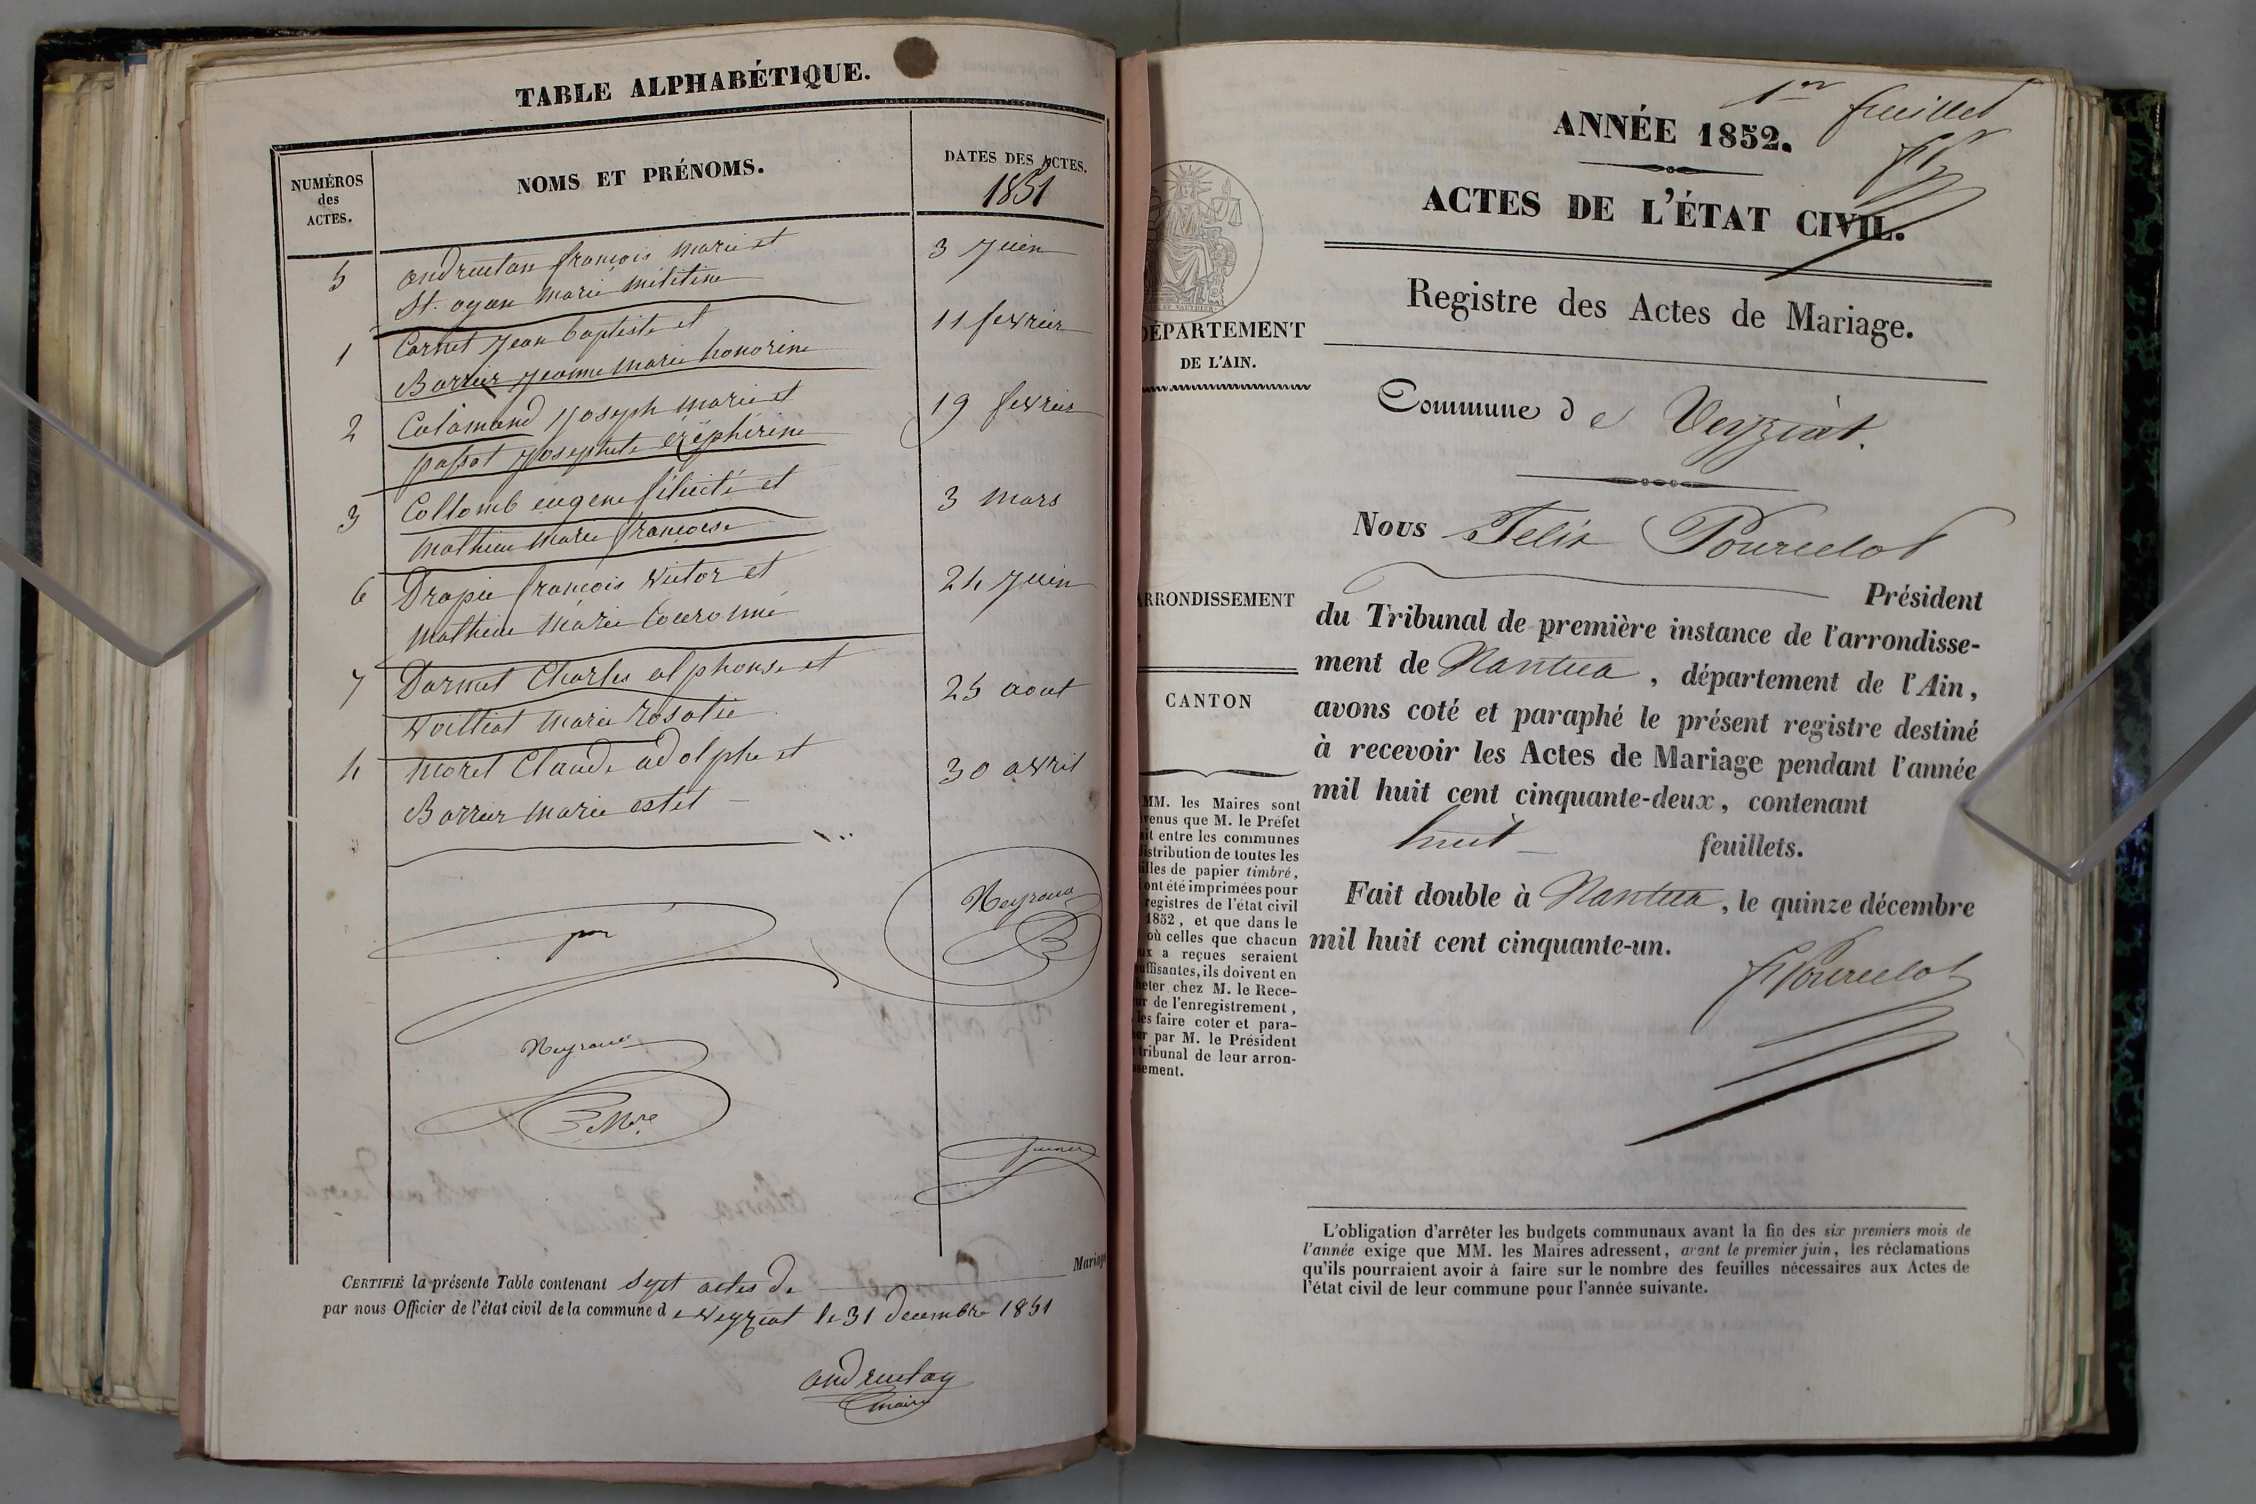 TABLE ALPHABÉTIQUE.
NUMÉROS
des
ACTES.
NOMS ET PRÉNOMS.
DATES DES ACTES.
1851
5 andruetan françois marie et 3 Juin
St. oyan marie
1 Carret Jean baptiste et 11 fevrier
Barrier Jeanne marie honorine
2 Calamand Joseph marie et 19 fevrier
passat Josephete
3 Collomb eugene félicité et 3 mars
mathieu marie françoise
6 Drapie françois victor et 24 Juin
mathieu marie
7 Darmet Charles alphonse et 25 aout
voilliat marie rosalie
4 Moret Claude adolphe et 30 avril
Barrier marie estel
CERTIFIÉ la présente Table contenant sept actes de Mariage
par nous Officier de l'état civil de la commune de veyziat le 31 decembre 1851
maire
1er feuillet
ANNÉE 1852.
ACTES DE L'ÉTAT CIVIL.
Registre des Actes de Mariage.
DÉPARTEMENT
DE L'AIN.
Commune de Veyziat.
Nous Felix Pourcelot
Président
du Tribunal de première instance de l'arrondisse-
ment de Nantua, département de l'Ain,
avons coté et paraphé le présent registre destiné
à recevoir les Actes de Mariage pendant l'année
mil huit cent cinquante-deux, contenant
huit feuillets.
Fait double à Nantua, le quinze décembre
mil huit cent cinquante-un.
F Pourcelot
ARRONDISSEMENT
CANTON
MM. les Maires sont
venus que M. le Préfet
ait entre les communes
distribution de toutes les
illes de papier timbré,
ont été imprimées pour
registres de l'état civil
1852, et que dans le
où celles que chacun
ux a reçues seraient
uffisantes, ils doivent en
heter chez M. le Rece-
ur de l'enregistrement,
les faire coter et para-
er par M. le Président
tribunal de leur arron-
sement.
L'obligation d'arrêter les budgets communaux avant la fin des six premiers mois de
l'année exige que MM. les Maires adressent, avant le premier juin, les réclamations
qu'ils pourraient avoir à faire sur le nombre des feuilles nécessaires aux Actes de
l'état civil de leur commune pour l'année suivante.